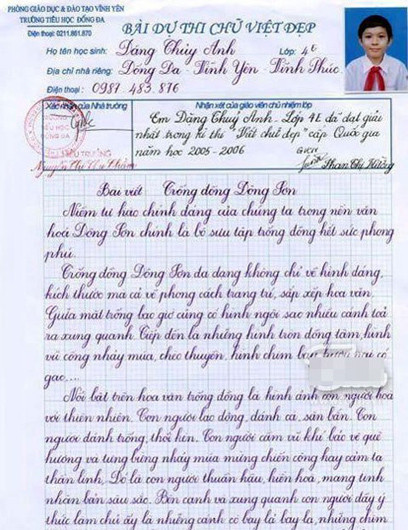 PHÒNG GIÁO DỤC & ĐÀO TẠO VĨNH YÊN
TRƯỜNG TIỂU HỌC ĐỐNG ĐA
Điện thoại: 0211.861.870
BÀI DỰ THI CHỮ VIẾT ĐẸP
Họ tên học sinh: Đặng Thùy Anh Lớp: 4E
Địa chỉ nhà riêng: Đống Đa - Vĩnh Yên - Vĩnh Phúc
Điện thoại: 0987 483 876
Xác nhận của Nhà trường
Nhận xét của giáo viên chủ nhiệm lớp
Em Đặng Thuỳ Anh - Lớp 4E đã đạt giải
nhất trong kì thi "Viết chữ đẹp" cấp Quốc gia
năm học 2005 - 2006
GVCN
Phan Thị Hường
Bài viết Trống đồng Đông Sơn
Niềm tự hào chính đáng của chúng ta trong nền văn
hoá Đông Sơn chính là bộ sưu tập trống đồng hết sức phong
phú.
Trống đồng Đông Sơn đa dạng không chỉ về hình dáng,
kích thước mà cả về phong cách trang trí, sắp xếp hoa văn.
Giữa mặt trống lạc giờ cũng có hình ngôi sao nhiều cánh toả
ra xung quanh. Tiếp đến là những hình tròn đồng tâm, hình
vũ công nhảy múa, chèo thuyền, hình chim bay, hươu nai có
gạc...
Nổi bật trên hoa văn trống đồng là hình ảnh con người hoà
với thiên nhiên. Con người lao động, đánh cá, săn bắn. Con
người đánh trống, thổi kèn. Con người cầm vũ khí bảo vệ quê
hương và tưng bừng nhảy múa mừng chiến công hay cảm tạ
thần linh. Đó là con người thuần hậu, hiền hoà, mang tính
nhân bản sâu sắc. Bên cạnh và xung quanh con người đầy ý
thức làm chủ ấy là những cánh cò bay lả bay la, những chim